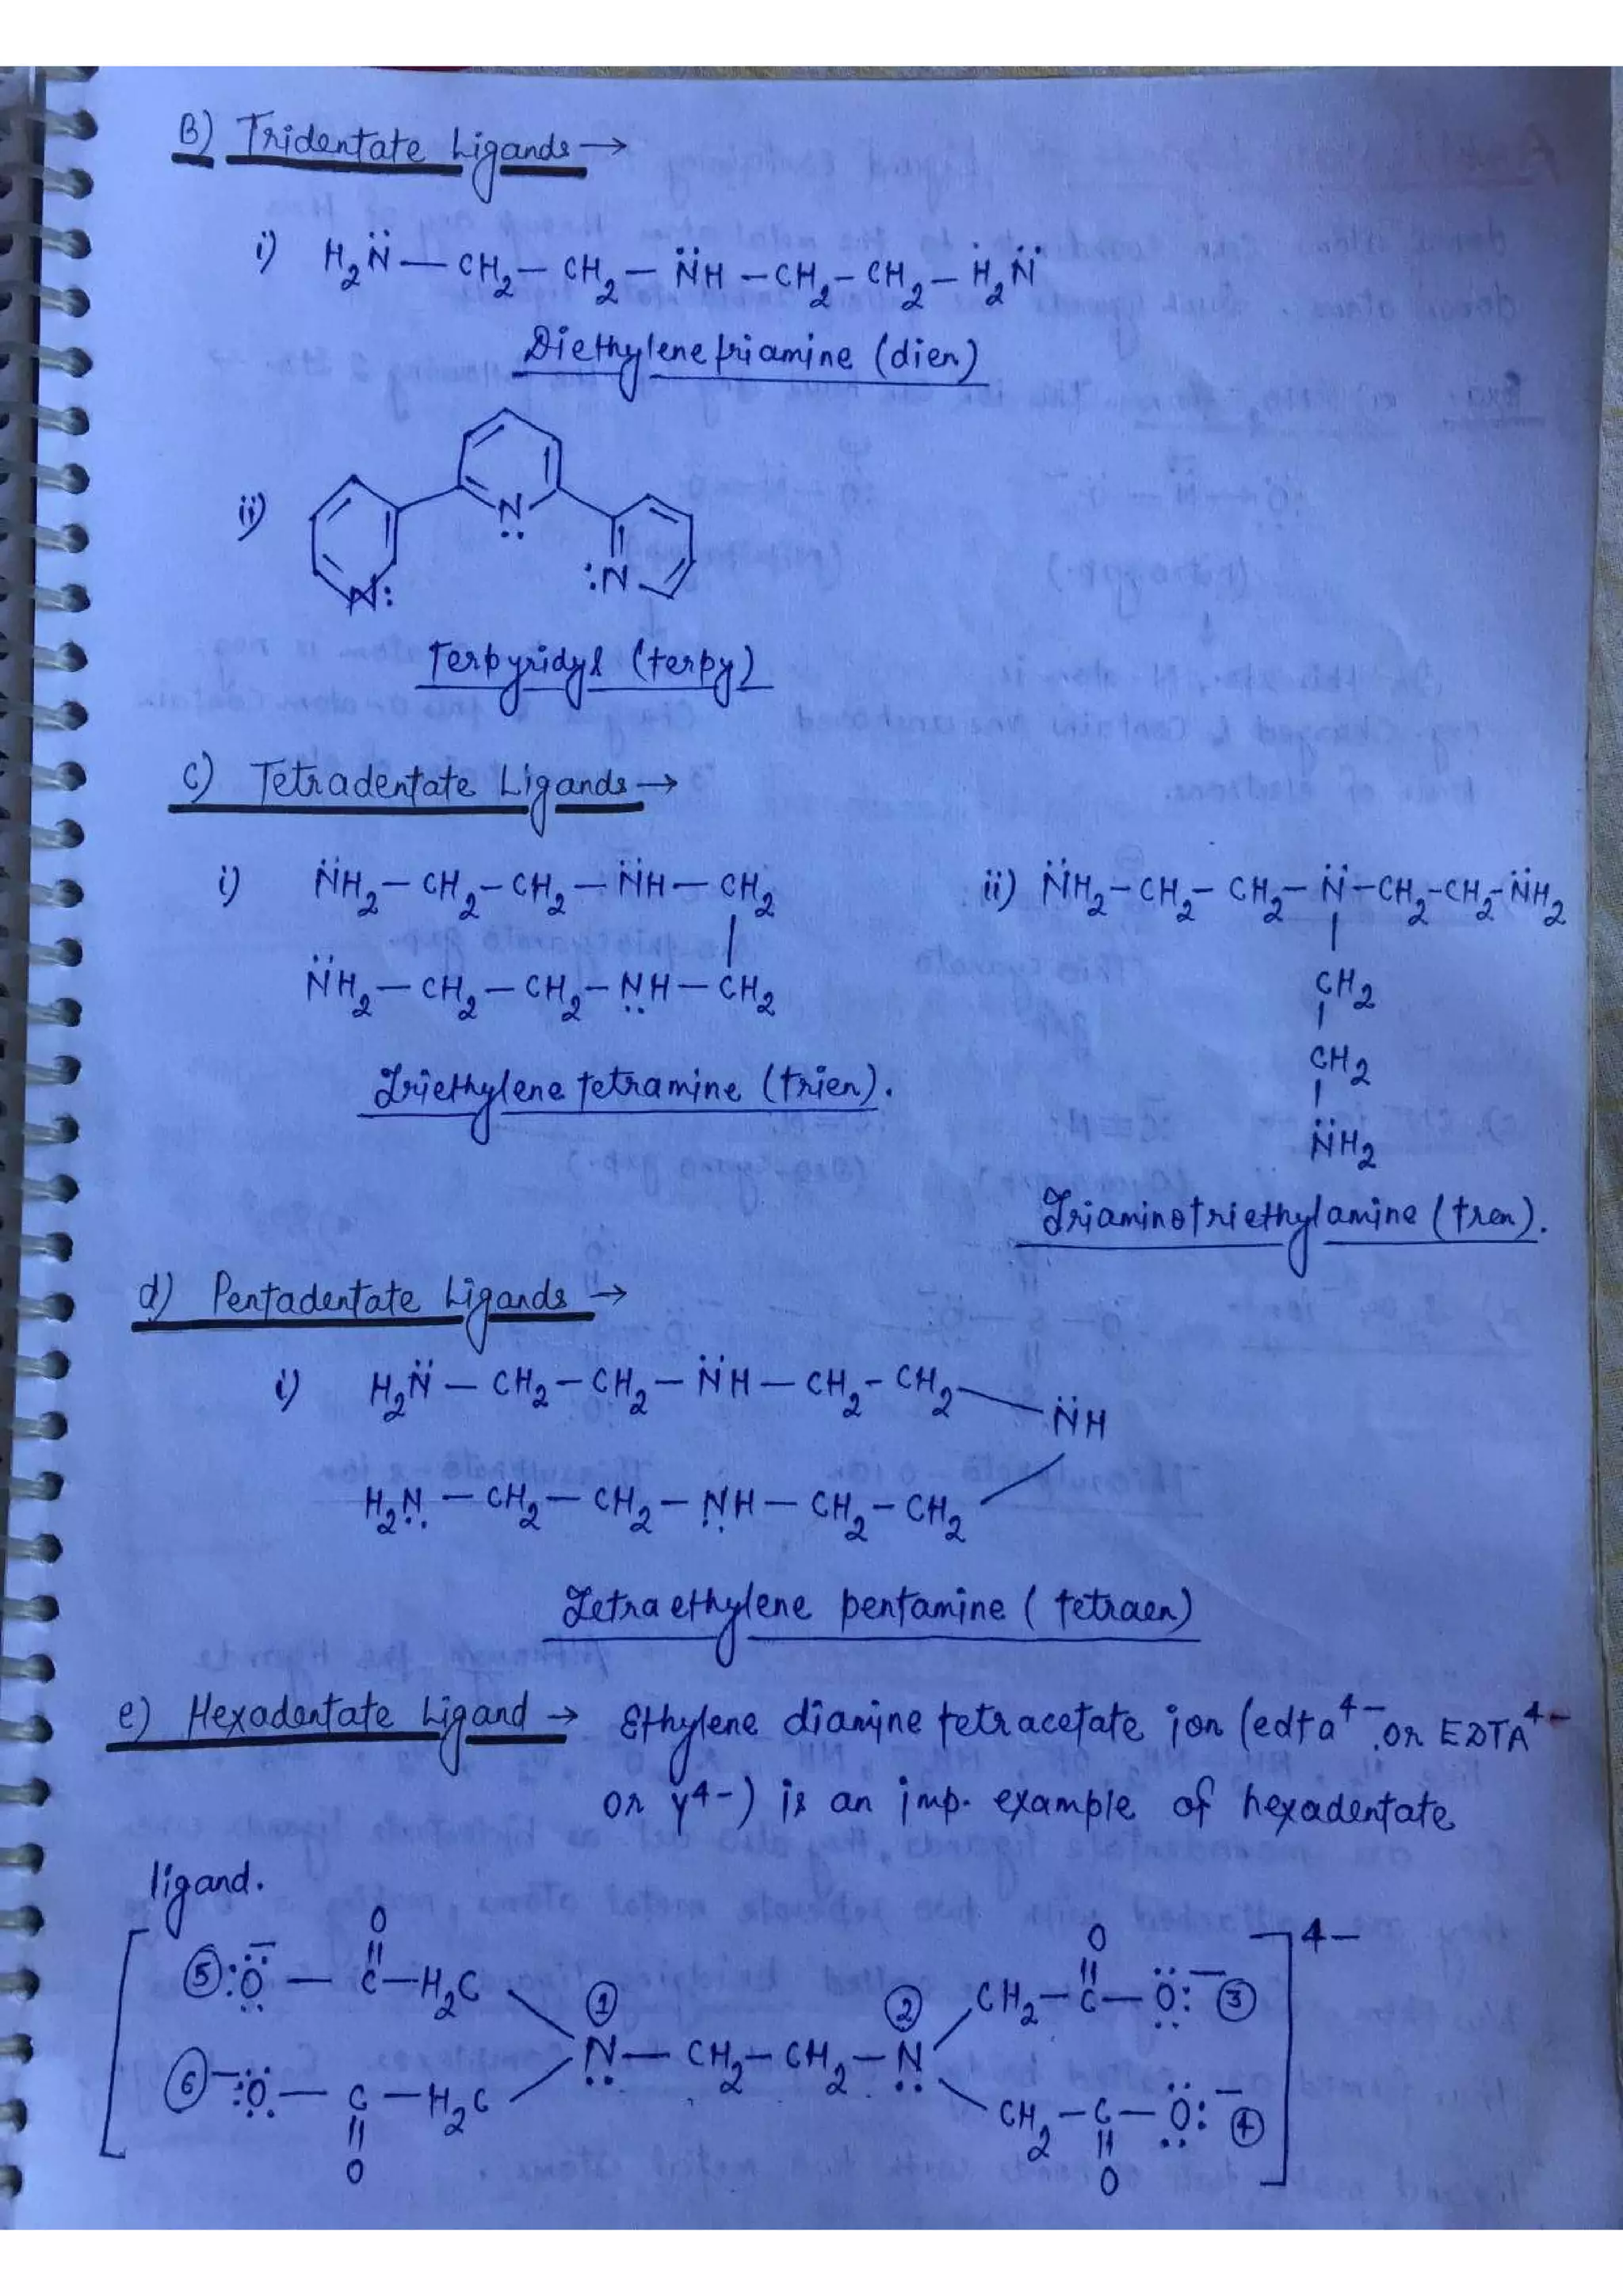 B) Tridentate Ligands →
i) H₂N̈ — CH₂ — CH₂ — N̈H — CH₂ — CH₂ — H₂N̈
Diethylenetriamine (dien)
ii)
N̈
:N
N:
Terpyridyl (terpy)
C) Tetradentate Ligands →
i) N̈H₂ — CH₂ — CH₂ — N̈H — CH₂
N̈H₂ — CH₂ — CH₂ — NH — CH₂
Triethylene tetramine (trien).
ii) N̈H₂ — CH₂ — CH₂ — N̈ — CH₂ — CH₂ — N̈H₂
CH₂
CH₂
N̈H₂
Triaminotriethylamine (tren).
d) Pentadentate Ligands →
i) H₂N̈ — CH₂ — CH₂ — N̈H — CH₂ — CH₂
N̈H
H₂N — CH₂ — CH₂ — NH — CH₂ — CH₂
Tetraethylene pentamine (tetraen)
e) Hexadentate Ligand → Ethylene diamine tetracetate ion (edta⁴⁻ or EDTA⁴⁻
or Y⁴⁻) is an imp. example of hexadentate
ligand.
O O 4−
⑤ :O⁻ — C — H₂C CH₂ — C — O:⁻ ③
① ②
N — CH₂ — CH₂ — N
⑥ ⁻:O — C — H₂C CH₂ — C — O:⁻ ④
O O